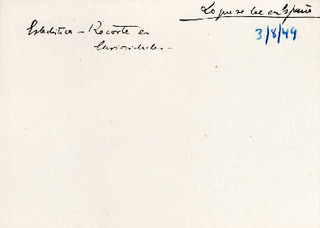 Lo que se lee en España
3/8/49
Estadística - Recorte en
Curiosidades -